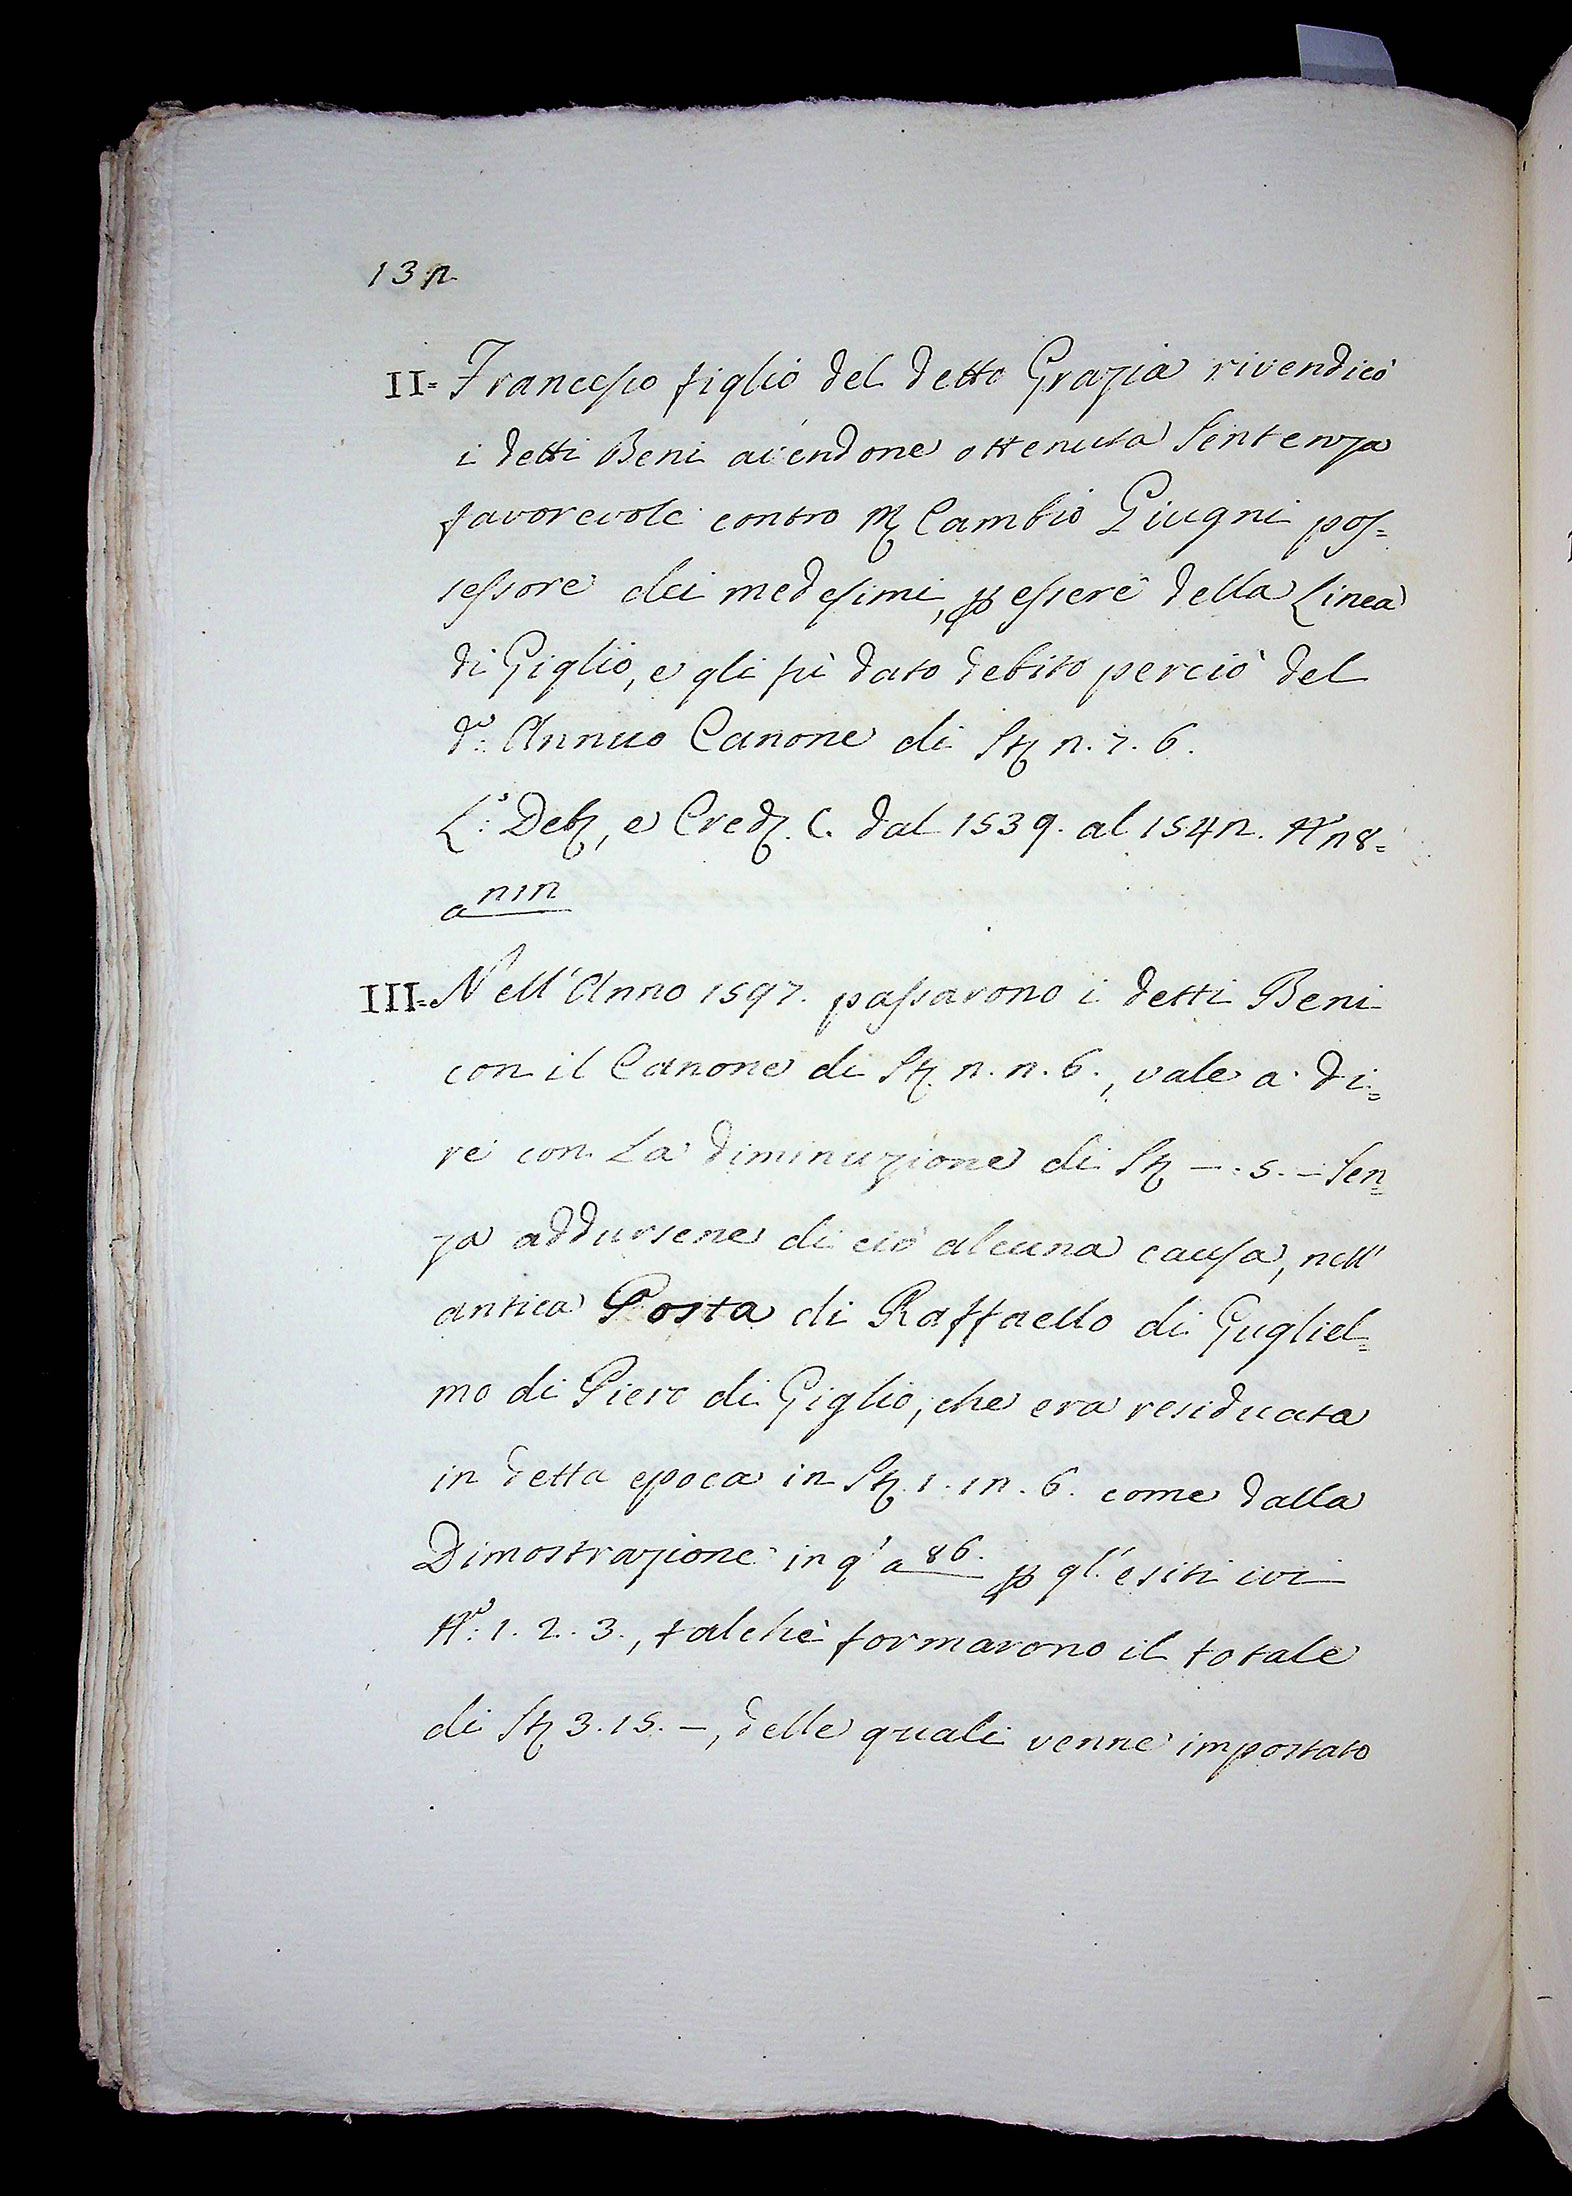 132
II= Francesco figlio del detto Grazia rivendicò
i detti Beni avendone ottenuta Sentenza
favorevole contro Mʒ Cambio Giugni pos=
sessore dei medesimi, ꝑ essere della Linea
di Giglio, e gli fù dato debito perciò del
d.º Annuo Canone di Stʒ 2. 7. 6.
L.º Debʒ, e Credʒ. C. dal 1539. al 1542. Nº 28=
a 212
III= Nell'Anno 1597. passarono i detti Beni
con il Canone di Stʒ 2. 2. 6., vale a di=
re con La diminuzione di Stʒ —. 5. — Sen=
za addursene di ciò alcuna causa, nell'
antica Posta di Raffaello di Gugliel=
mo di Piero di Giglio, che era residuata
in detta epoca in Stʒ 1. 12. 6. come dalla
Dimostrazione in q.º a 86. ꝑ gl'esiti ivi
Nº: 1. 2. 3., talchè formarono il totale
di Stʒ 3. 15. —, delle quali venne impostato